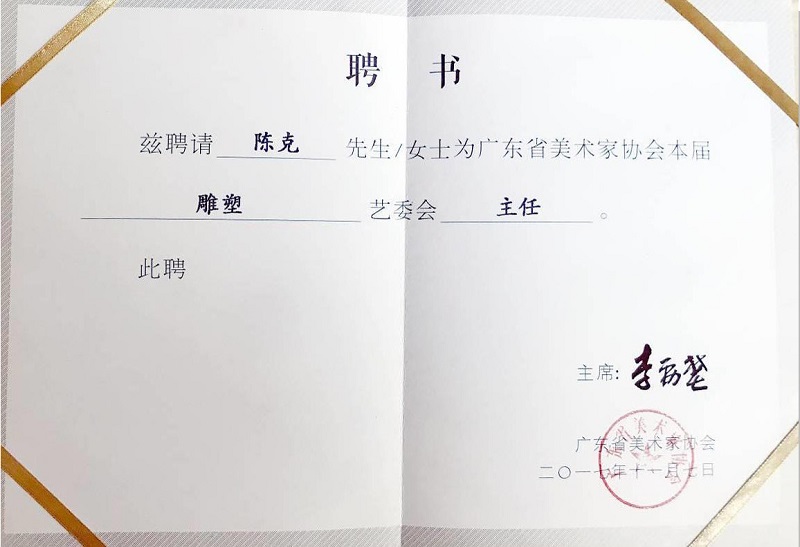 聘 书
兹聘请 陈克 先生/女士为广东省美术家协会本届
雕塑 艺委会 主任 。
此聘
主席:李劲堃
广东省美术家协会
二〇一七年十一月七日